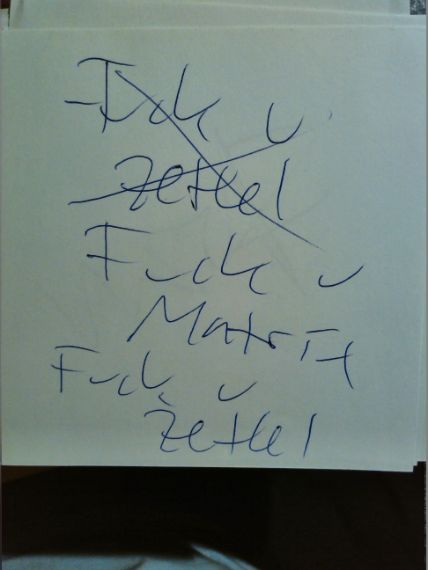 Fuck u
Zettel
Fuck u
Matrix
Fuck u
Zettel